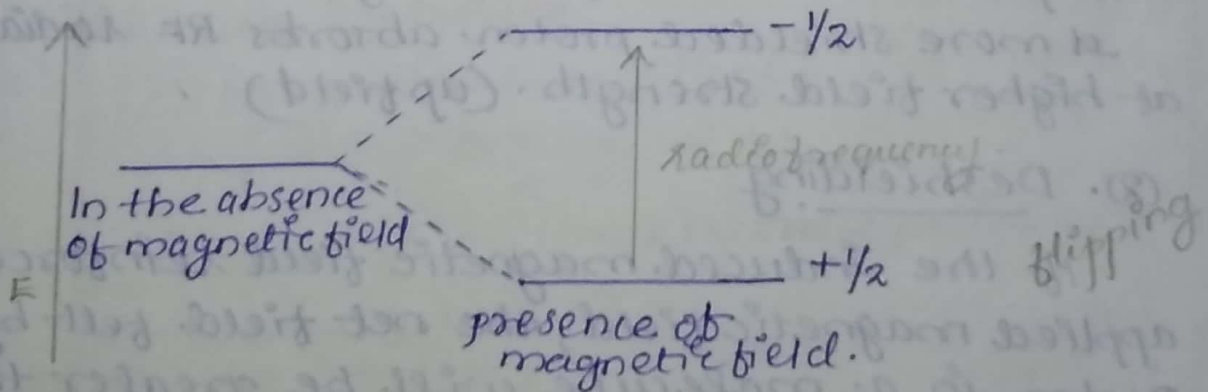 -1/2
radiofrequency
In the absence
of magnetic field
+1/2
flipping
E
presence of
magnetic field.